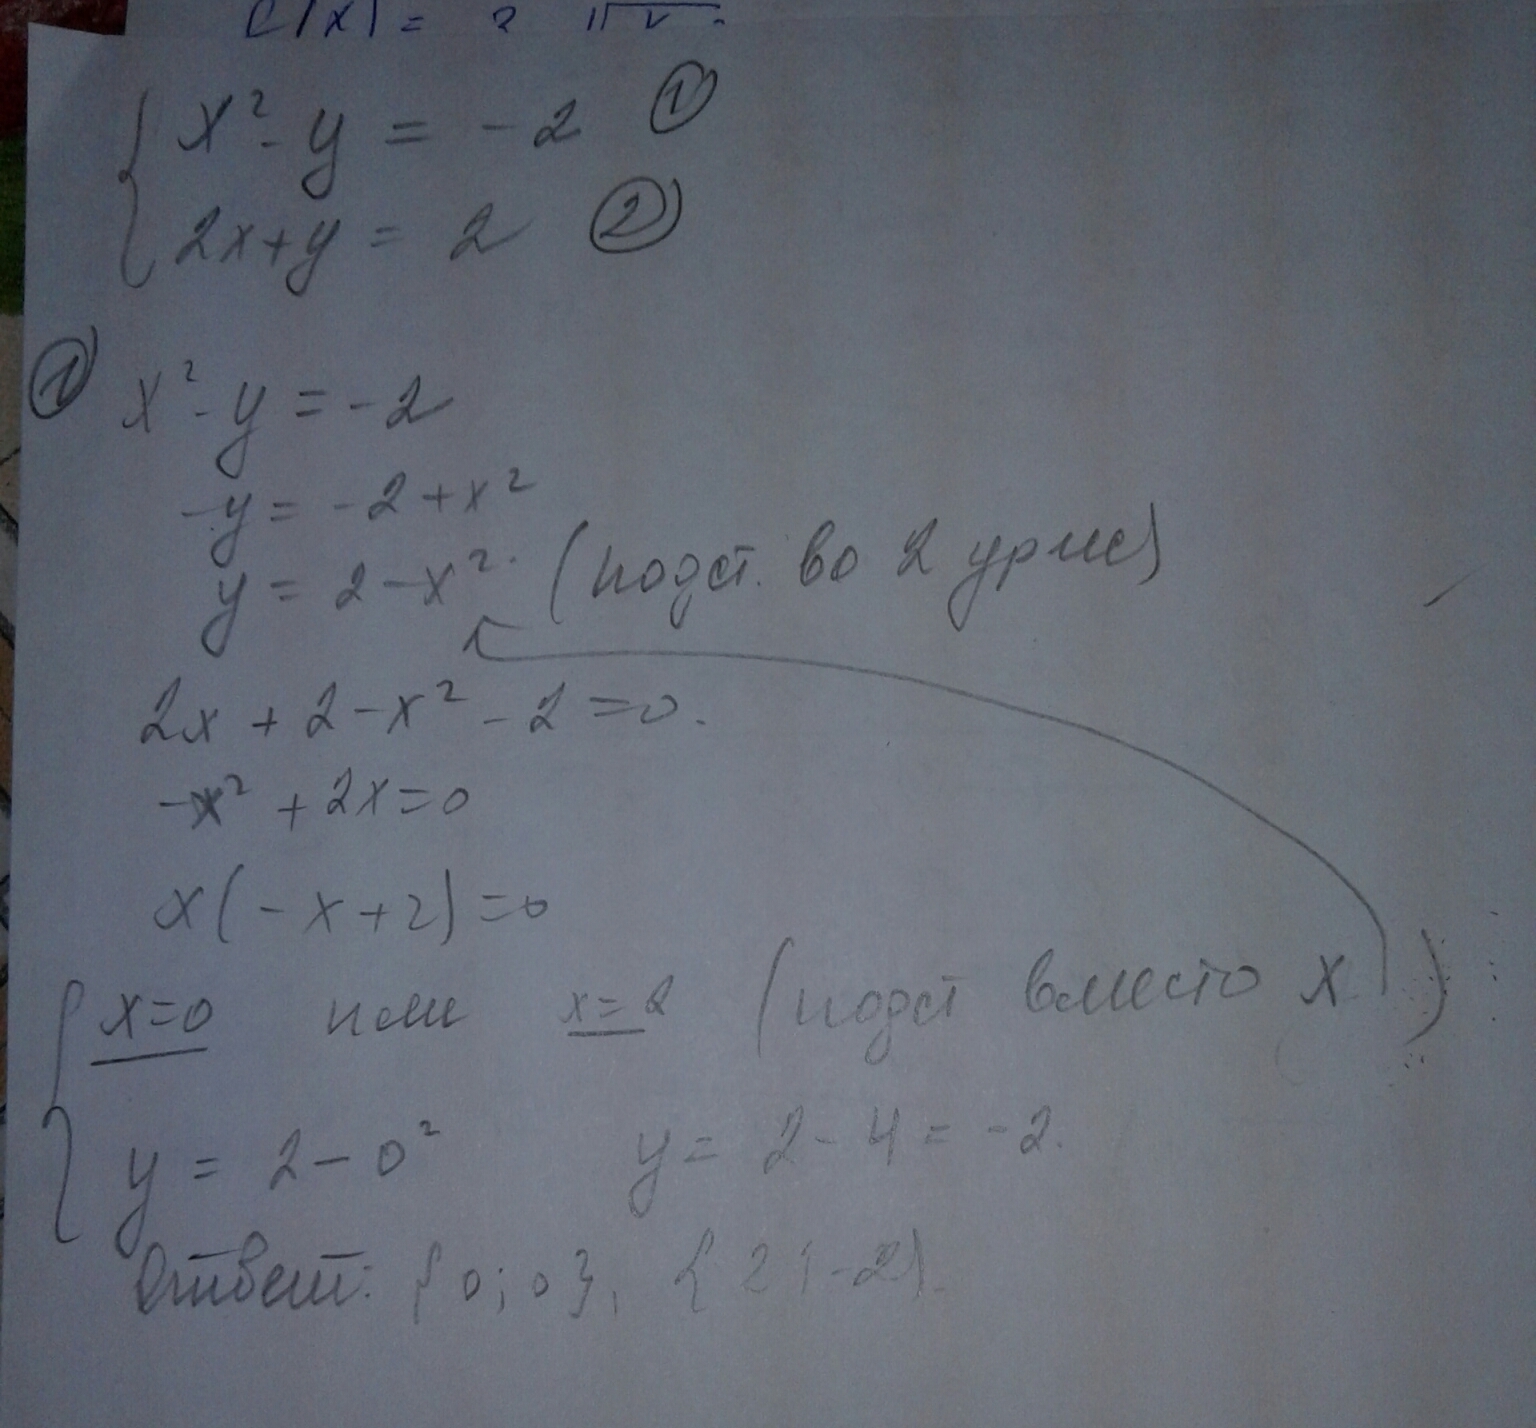 x² - y = -2 ①
2x+y = 2 ②
① x² - y = -2
-y = -2 + x²
y = 2 - x². (подст. во 2 урие)
2x + 2 - x² - 2 = 0.
-x² + 2x = 0
x(-x+2) = 0
x=0 или x=2 (подст вместо x)
y = 2 - 0² y = 2 - 4 = -2.
Ответ: {0; 0}, {2; -2}.